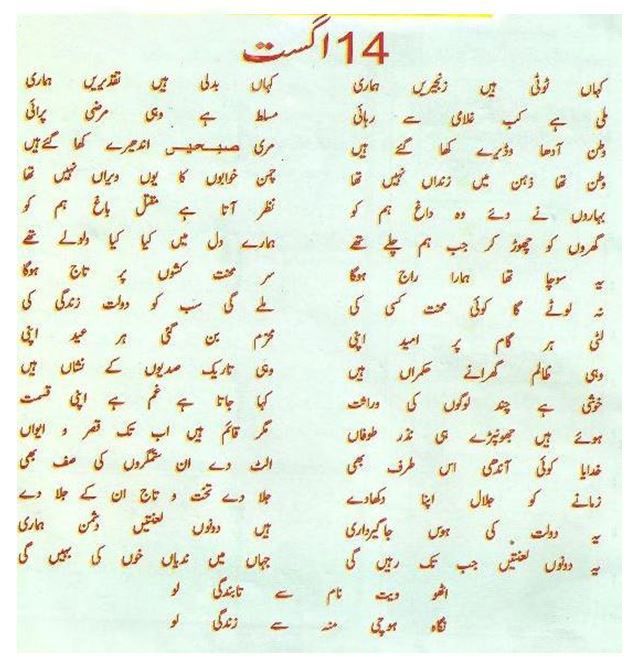 14 اگست
کہاں ٹوٹی ہیں زنجیریں ہماری کہاں بدلی ہیں تقدیریں ہماری
ملی ہے کب غلامی سے رہائی مسلط ہے وہی مرضی پرائی
وطن آدھا وڈیرے کھا گئے ہیں مری صبحیں اندھیرے کھا گئے ہیں
وطن تھا ذہن میں زنداں نہیں تھا چمن خوابوں کا یوں ویراں نہیں تھا
بہاروں نے دئے وہ داغ ہم کو نظر آتا ہے مقتل باغ ہم کو
گھروں کو چھوڑ کر جب ہم چلے تھے ہمارے دل میں کیا کیا ولولے تھے
یہ سوچا تھا ہمارا راج ہوگا سر محنت کشوں پر تاج ہوگا
نہ لوٹے گا کوئی محنت کسی کی ملے گی سب کو دولت زندگی کی
لٹی ہر گام پر امید اپنی محرم بن گئی ہر عید اپنی
وہی ظالم گھرانے حکمراں ہیں وہی تاریک صدیوں کے نشاں ہیں
خوشی ہے چند لوگوں کی وراثت کہا جاتا ہے غم ہے اپنی قسمت
ہوئے ہیں جھونپڑے ہی نذر طوفاں مگر قائم ہیں اب تک قصر و ایواں
خدایا کوئی آندھی اس طرف بھی الٹ دے ان ستمگروں کی صف بھی
زمانے کو جلال اپنا دکھادے جلا دے تخت و تاج ان کے جلا دے
یہ دولت کی ہوس جاگیرداری ہیں دونوں لعنتیں دشمن ہماری
یہ دونوں لعنتیں جب تک رہیں گی جہاں میں ندیاں خوں کی بہیں گی
اٹھو ویت نام سے تابندگی لو
نگاہ ہوچی منہ سے زندگی لو